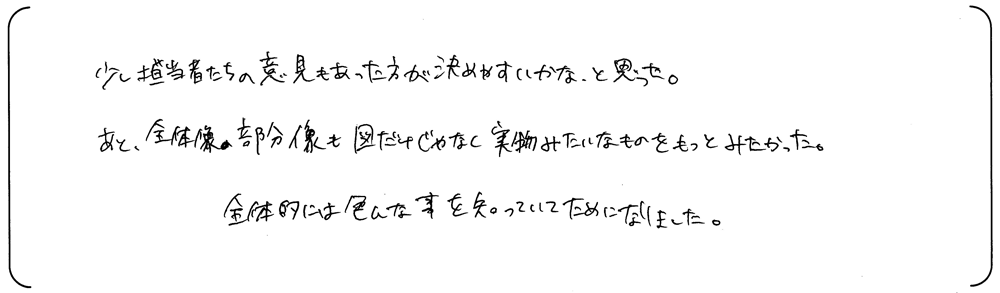 少し担当者たちの意見もあった方が決めやすいかな、と思った。
あと、全体像、部分像も図だけじゃなく実物みたいなものをもっとみたかった。
全体的には色んな事を知っていてためになりました。